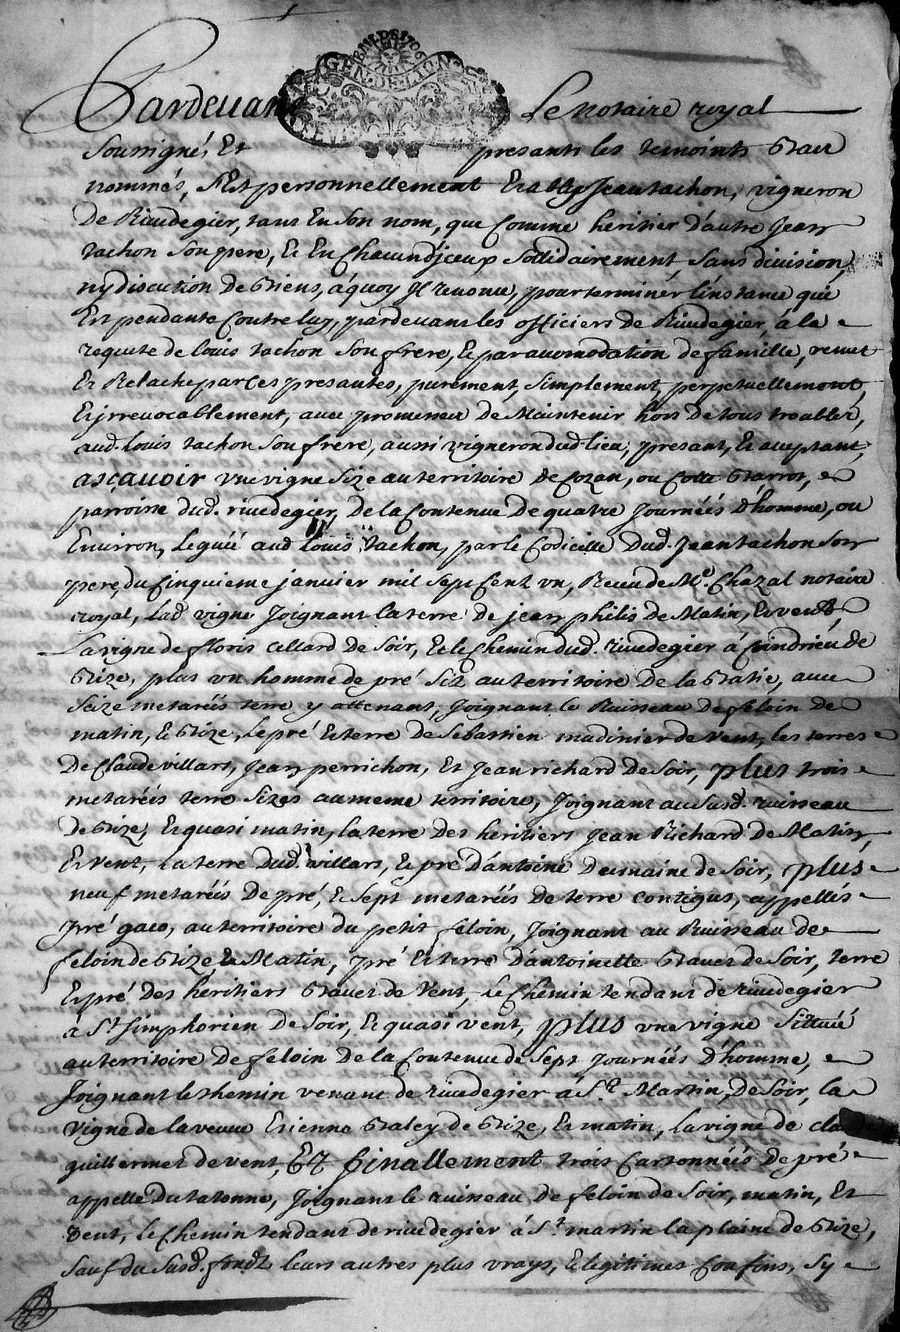 BAIL DE 1706
GEN. DE LION
Pardevant Le notaire royal
soussigné, Et presants les temoints bas
nommés, s'Est personnellement Estably Jean tachon, vigneron
de Rivedegier, tant En son nom, que Comme heritier d'autre Jean
tachon son pere, Et En Chacun d'jceux sollidairement, sans division
ny discution de biens, á quoy Jl renonce, pour terminér l'instance qui
Est pendante Contre luy, pardevant les officiers de Rivedegier, á la
requete de louis tachon son frere, Et par accomodation de famille, remet
Et Relache par Ces presantes, purement, simplement, perpetuellement,
Et jrrevocablement, avec promesse de Maintenir hors de tous troubles,
aud. louis tachon son frere, aussi vigneron dud. lieu, presant, Et acceptant,
asçavoir vne vigne size au territoire de Cozan, ou Cotte barrot,
parroisse dud. rivedegier, de la Contenue de quatre journéés d'homme, ou
Environ, leguéé aud. louis tachon, par le Codicille dud. Jean tachon son
pere, du Cinquieme janvier mil sept Cent vn, Receu de Me. Chazal notaire
royal, lad. vigne Joignant la terre de jean philis de Matin, Et vent,
La vigne de floris Collard de soir, Et le Chemin dud. rivedegier á Condrieu de
bize, plus vn homme de pré size au territoire de la batie, avec
seize metaréés terre y attenant, Joignant le Ruisseau de feloin de
matin, Et bize, le pré Et terre de sebastien mudinier de vent, les terres
de Claude villars, Jean perrichon, Et Jean richard de soir, plus trois
metaréés terre sizes au meme territoire, Joignant au susd. ruisseau
de bize, Et quasi matin, la terre des heritiers Jean Richard de Matin,
Et vent, la terre dud. villars, Et pré d'antoine dumaine de soir, plus
neuf metaréés de pré, Et sept metaréés de terre contigus, appellés
pré gaco, au territoire du petit feloin, Joignant au Ruisseau de
feloin de bize Et Matin, pré Et terre d'antoinette de soir, terre
Et pré des heritiers de vent, le Chemin tendant de rivedegier
á St. simphorien de soir, Et quasi vent, plus vne vigne sittuéé
au territoire de feloin de la Contenue de sept journéés d'homme,
Joignant le Chemin venant de rivedegier á St. Martin, de soir, la
vigne de la veuve Etienne baley de bize, Et matin, la vigne de
guillermet de vent, Et finallement trois cartonnéés de pré
appellé du tatonne, Joignant le ruisseau de feloin de soir, matin, Et
vent, le Chemin tendant de rivedegier á St. martin la plaine de bize,
sauf du susd. fonds leurs autres plus vrays, Et legitimes Confins, sy